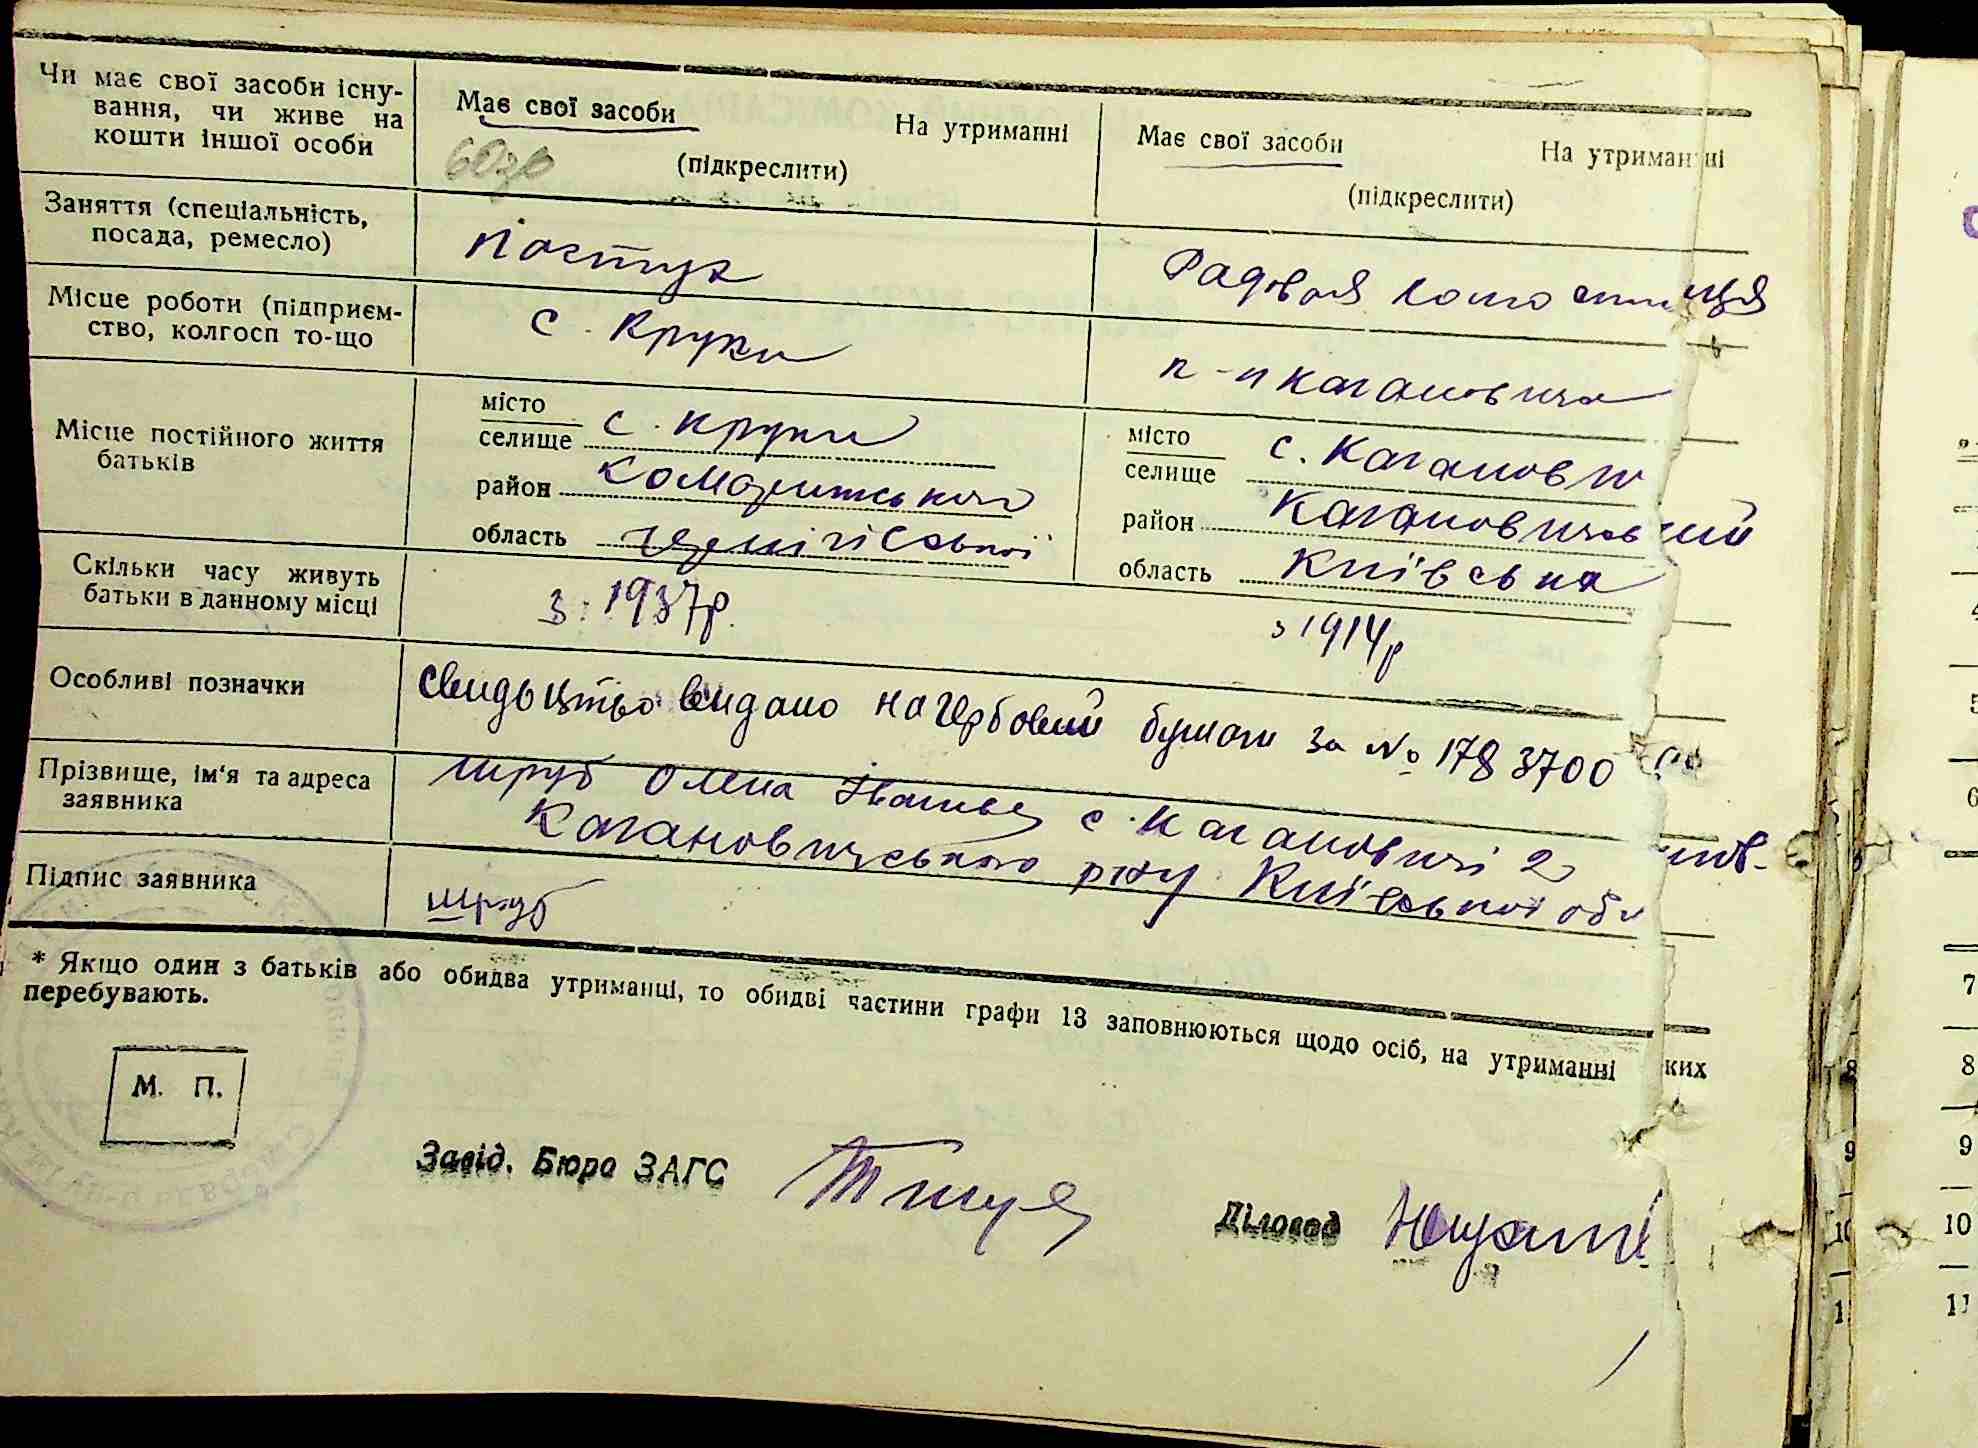 Чи має свої засоби існу-
вання, чи живе на
кошти іншої особи
Має свої засоби На утриманні
(підкреслити)
Має свої засоби На утриманні
(підкреслити)
Заняття (спеціальність,
посада, ремесло)
Пастух
Радовая колгоспниця
Місце роботи (підприєм-
ство, колгосп то-що
с. Круки
к-п Кагановича
Місце постійного життя
батьків
місто
селище с. Круки
район
область Чернігівської
місто
селище с. Кагановичі
район Кагановичський
область Київська
Скільки часу живуть
батьки в данному місці
з 1937р.
з 1914р
Особливі позначки
Свидоцтво видано на гербовий бумаги за № 1783700
Прізвище, ім'я та адреса
заявника
Шруб Олена Іванівна с. Кагановичі 2
Кагановичського р-ну Київської обл
Підпис заявника
Шруб
* Якщо один з батьків або обидва утриманці, то обидві частини графи 13 заповнюються щодо осіб, на утриманні яких
перебувають.
М. П.
Завід. Бюро ЗАГС
Діловод
4
5
6
7
8
9
10
11